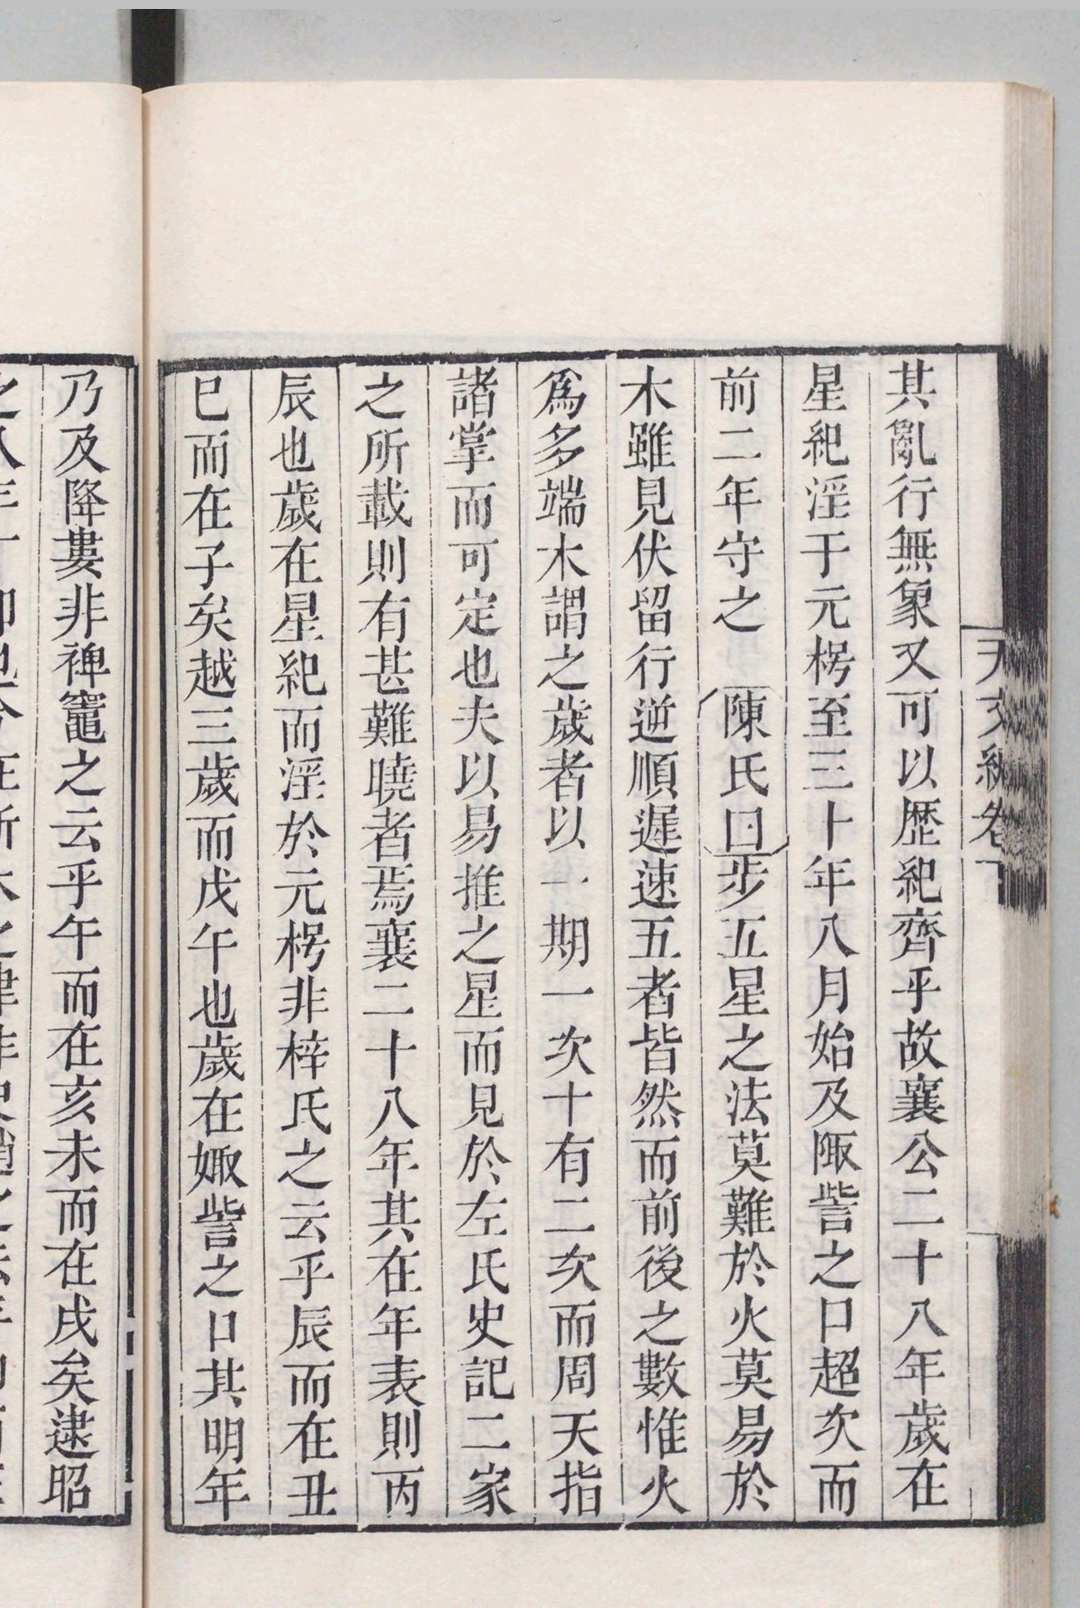 其亂行無象又可以歴紀齊乎故襄公二十八年歲在
星紀淫于元枵至三十年八月始及陬訾之口超次而
前二年守之 陳氏曰步五星之法莫難於火莫易於
木雖見伏留行逆順遲速五者皆然而前後之數惟火
爲多端木謂之歲者以一期一次十有二次而周天指
諸掌而可定也夫以易推之星而見於左氏史記二家
之所載則有甚難曉者焉襄二十八年其在年表則丙
辰也歲在星紀而淫於元枵非梓氏之云乎辰而在丑
巳而在子矣越三歲而戊午也歲在娵訾之口其明年
乃及降婁非裨竈之云乎午而在亥未而在戌矣逮昭